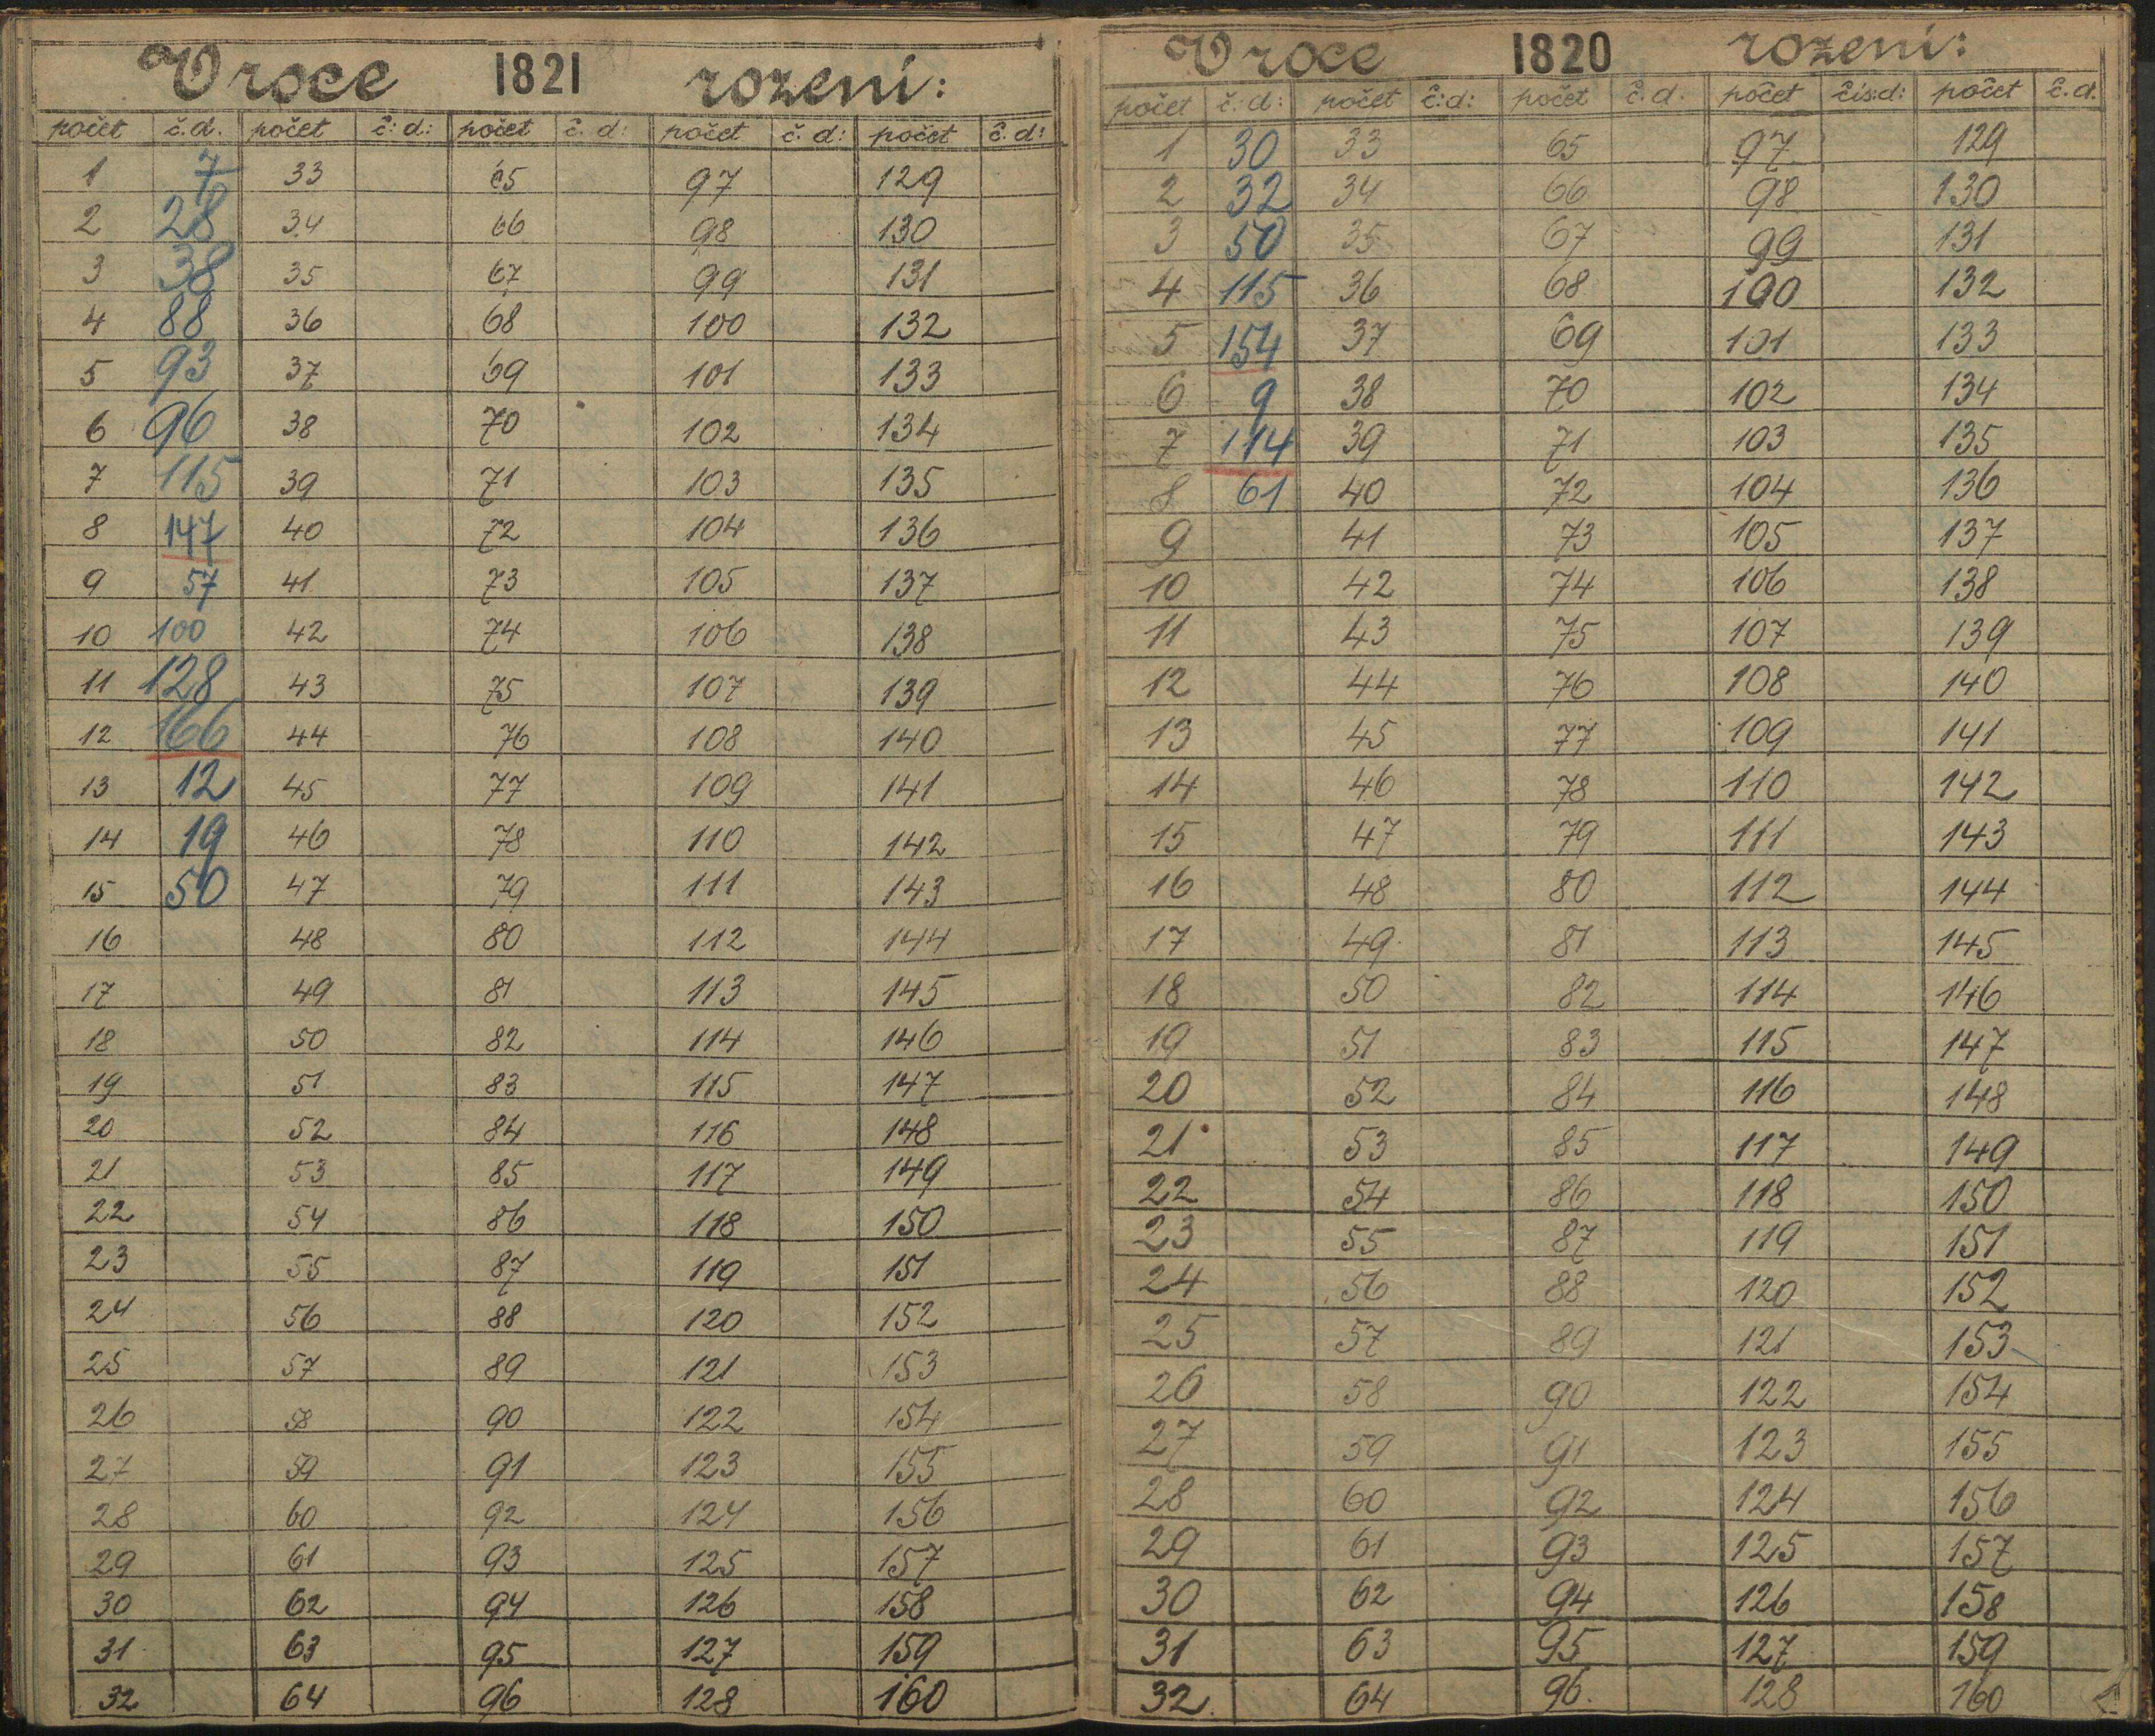 V roce 1821 rozeni:
počet č.d. počet č:d: počet č.d: počet č.d: počet č.d:
1 7 33 65 97 129
2 28 34 66 98 130
3 38 35 67 99 131
4 88 36 68 100 132
5 93 37 69 101 133
6 96 38 70 102 134
7 115 39 71 103 135
8 147 40 72 104 136
9 57 41 73 105 137
10 100 42 74 106 138
11 128 43 75 107 139
12 166 44 76 108 140
13 12 45 77 109 141
14 19 46 78 110 142
15 50 47 79 111 143
16 48 80 112 144
17 49 81 113 145
18 50 82 114 146
19 51 83 115 147
20 52 84 116 148
21 53 85 117 149
22 54 86 118 150
23 55 87 119 151
24 56 88 120 152
25 57 89 121 153
26 58 90 122 154
27 59 91 123 155
28 60 92 124 156
29 61 93 125 157
30 62 94 126 158
31 63 95 127 159
32 64 96 128 160
V roce 1820 rozeni:
počet č:d: počet č:d: počet č.d. počet čís:d: počet č.d.
1 30 33 65 97 129
2 32 34 66 98 130
3 50 35 67 99 131
4 115 36 68 100 132
5 154 37 69 101 133
6 9 38 70 102 134
7 114 39 71 103 135
8 61 40 72 104 136
9 41 73 105 137
10 42 74 106 138
11 43 75 107 139
12 44 76 108 140
13 45 77 109 141
14 46 78 110 142
15 47 79 111 143
16 48 80 112 144
17 49 81 113 145
18 50 82 114 146
19 51 83 115 147
20 52 84 116 148
21 53 85 117 149
22 54 86 118 150
23 55 87 119 151
24 56 88 120 152
25 57 89 121 153
26 58 90 122 154
27 59 91 123 155
28 60 92 124 156
29 61 93 125 157
30 62 94 126 158
31 63 95 127 159
32 64 96 128 160